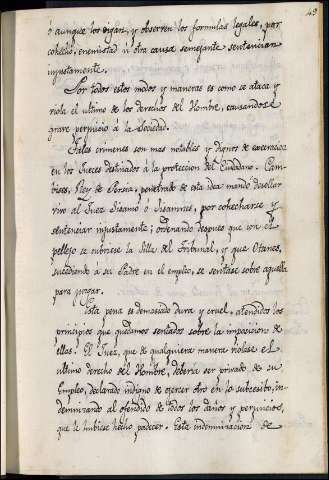 49
ó aunque los oigan, y observen las formulas legales, por
cohecho, enemistad ú otra causa semejante sentencian
injustamente.
Por todos estos modos y maneras es como se ataca y
viola el ultimo de los derechos del Hombre, causandose
grave perjuicio á la Sociedad.
Tales crimenes son mas notables y dignos de execracion
en los Jueces destinados á la proteccion del Ciudadano. Cam-
bises, Rey de Persia, penetrado de esta idea mandó desollar
vivo al Juez Sisamo ó Sisamnes, por cohecharse y
sentenciar injustamente; ordenando despues que con el
pellejo se cubriese la Silla del Tribunal, y que Otanes,
sucediendo á su Padre en el empleo, se sentase sobre aquella
para juzgar.
Esta pena es demasiado dura y cruel, atendidos los
principios que quedamos sentados sobre la imposicion de
ellas. El Juez, que de qualquiera manera violase el
ultimo derecho del Hombre, deberia ser privado de su
Empleo, declarado indigno de exercer otro en lo subcesibo, in-
demnizando al ofendido de todos los daños y perjuicios,
que le hubiese hecho padecer. Esta indemnizacion de